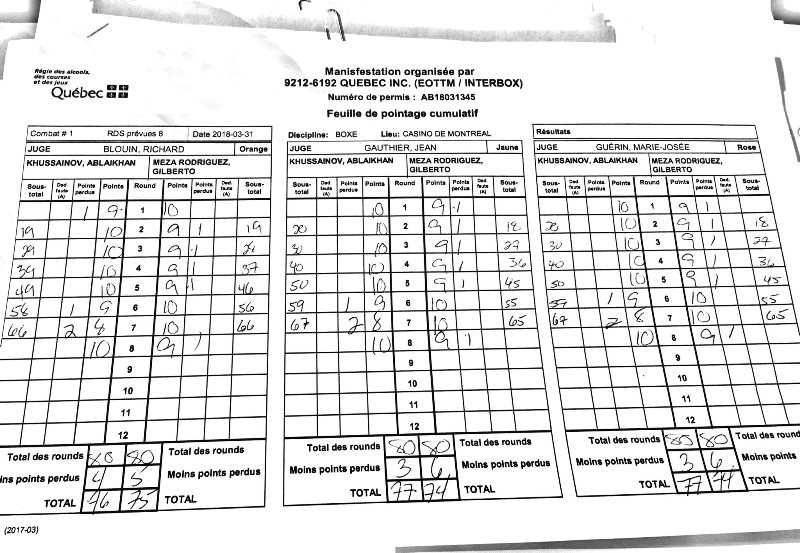 Régie des alcools,
des courses
et des jeux
Québec
Manisfestation organisée par
9212-6192 QUEBEC INC. (EOTTM / INTERBOX)
Numéro de permis : AB18031345
Feuille de pointage cumulatif
Combat # 1 RDS prévues 8 Date 2018-03-31 Discipline: BOXE Lieu: CASINO DE MONTREAL Résultats
JUGE BLOUIN, RICHARD Orange JUGE GAUTHIER, JEAN Jaune JUGE GUÉRIN, MARIE-JOSÉE Rose
KHUSSAINOV, ABLAIKHAN MEZA RODRIGUEZ, GILBERTO KHUSSAINOV, ABLAIKHAN MEZA RODRIGUEZ, GILBERTO KHUSSAINOV, ABLAIKHAN MEZA RODRIGUEZ, GILBERTO
Sous-total Ded. faute (A) Points perdus Points Round Points Points perdus Ded. faute (A) Sous-total Sous-total Ded. faute (A) Points perdus Points Round Points Points perdus Ded. faute (A) Sous-total Sous-total Ded. faute (A) Points perdus Points Round Points Points perdus Ded. faute (A) Sous-total
1 9 1 10 10 1 9 1 10 1 9 1
19 10 2 9 1 19 20 10 2 9 1 18 20 10 2 9 1 18
29 10 3 9 1 28 30 10 3 9 1 27 30 10 3 9 1 27
39 10 4 9 1 37 40 10 4 9 1 36 40 10 4 9 1 36
49 10 5 9 1 46 50 10 5 9 1 45 50 10 5 9 1 45
58 1 9 6 10 56 59 1 9 6 10 55 1 9 6 10 55
66 2 8 7 10 66 67 2 8 7 10 65 67 2 8 7 10 65
10 8 9 1 10 8 9 1 10 8 9 1
9 9 9
10 10 10
11 11 11
12 12 12
Total des rounds 80 80 Total des rounds Total des rounds 80 80 Total des rounds Total des rounds 80 80 Total des rounds
ins points perdus 4 5 Moins points perdus Moins points perdus 3 6 Moins points perdus Moins points perdus 3 6 Moins points perdu
TOTAL 76 75 TOTAL TOTAL 77 74 TOTAL TOTAL 77 74 TOTAL
(2017-03)